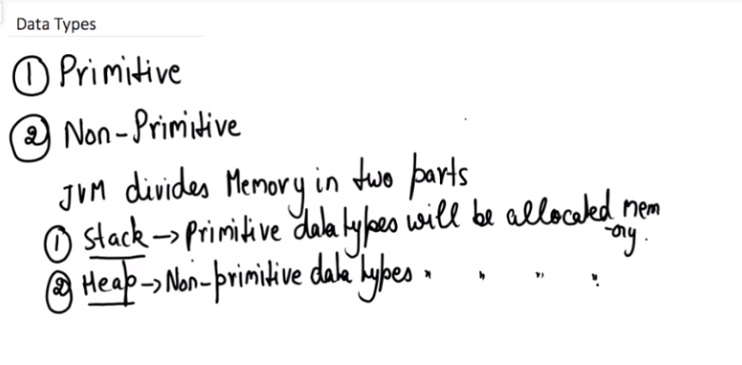 Data Types
① Primitive
② Non-Primitive
JVM divides Memory in two parts
① Stack → Primitive data types will be allocated mem
-ory.
② Heap → Non-primitive data types " " " "